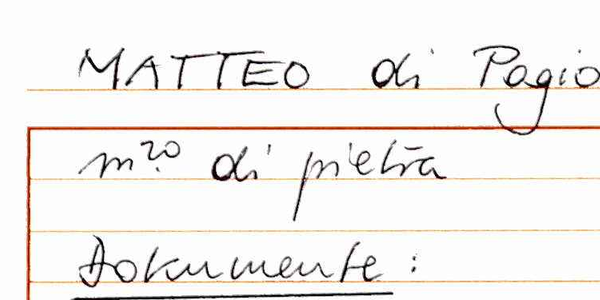 MATTEO di Pagio
m.ro di pietra
Dokumente: